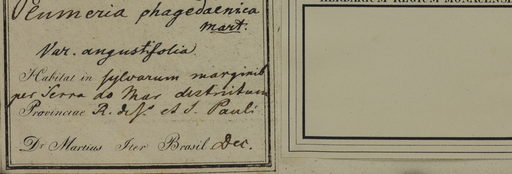 Plumeria phagedaenica
Mart.
Var. angustifolia
Habitat in sylvarum marginib
per Serra do Mar districtum
Provinciae R. de J. et S. Pauli
Dr Martius Iter Brasil Dec.
HERBARIUM REGIUM MONACENSE